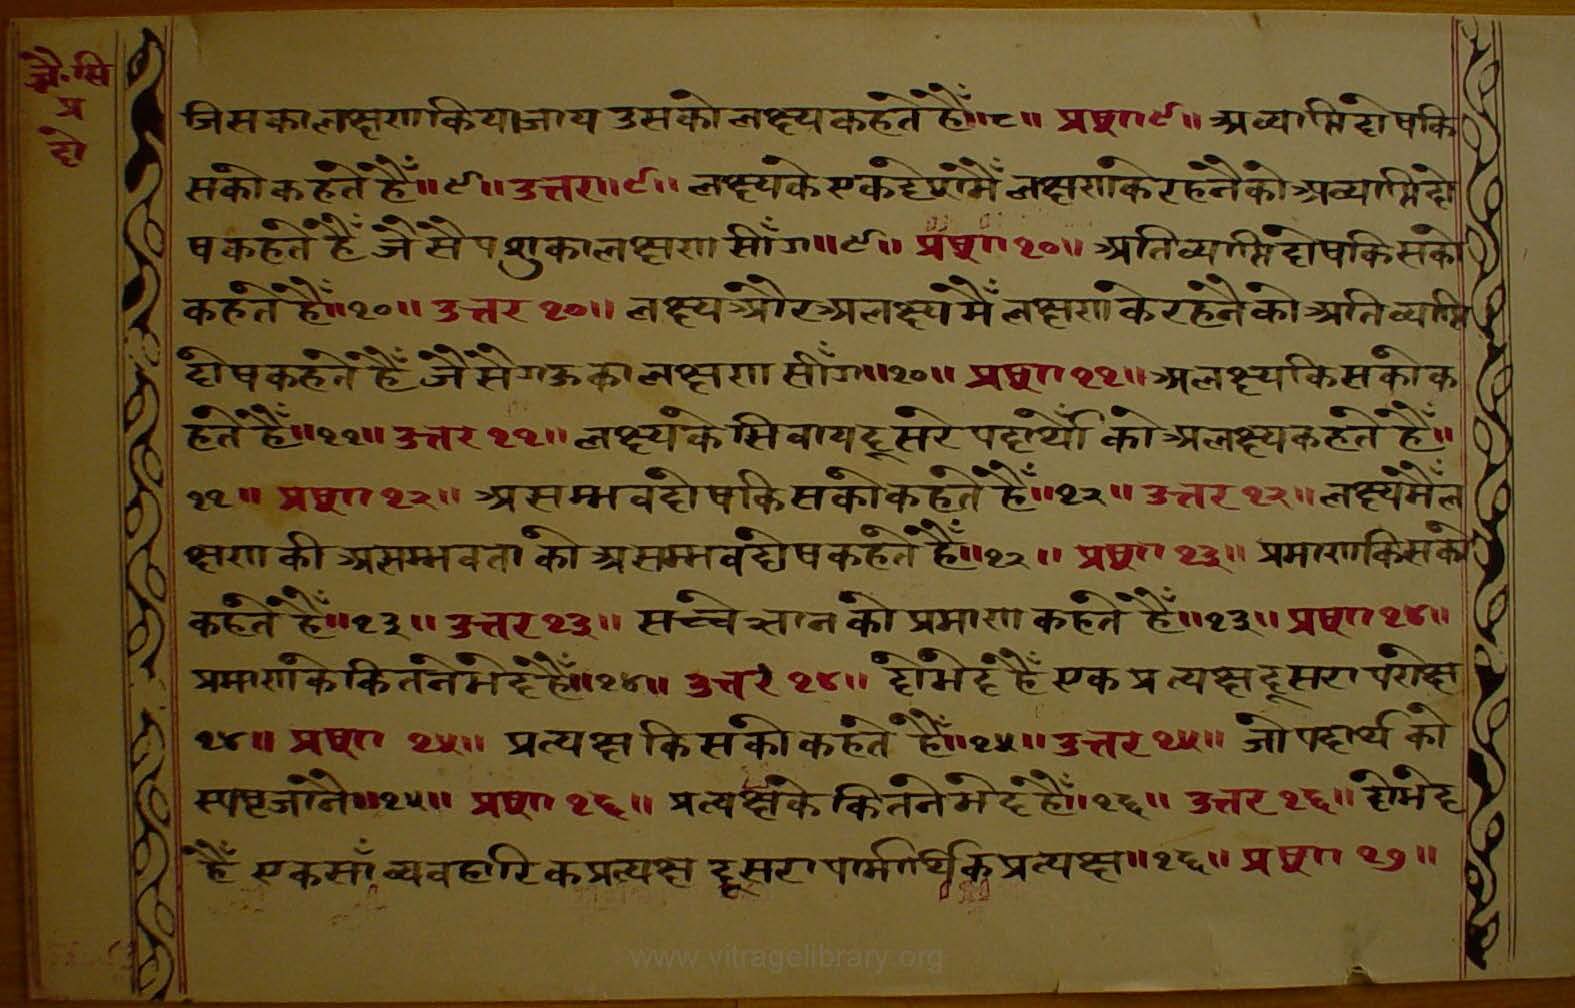 जै·सि
प्र
दो
जिसका लक्षण किया जाय उसको लक्ष्य कहते हैं॥८॥ प्रष्ण९॥ अव्याप्ति दोष कि
सको कहते हैं॥९॥ उत्तर॥९॥ लक्ष्य के एक देश मैं लक्षण के रहनै को अव्याप्ति दो
ष कहते हैं जैसै पशु का लक्षण सीँग॥९॥ प्रष्ण १०॥ अतिव्याप्ति दोष किसको
कहते हैं॥१०॥ उत्तर १०॥ लक्ष्य और अलक्ष्य मैं लक्षण के रहनै को अतिव्याप्ति
दोष कहते हैं जैसै गऊ का लक्षण सीँग॥१०॥ प्रष्ण ११॥ अलक्ष्य किसको क
हते हैं॥११॥ उत्तर ११॥ लक्ष्य के सिवाय दूसरे पदार्थों को अलक्ष्य कहते हैं॥
११॥ प्रष्ण १२॥ असम्भव दोष किसको कहते हैं॥१२॥ उत्तर १२॥ लक्ष्य मैं ल
क्षण की असम्भवता को असम्भव दोष कहते हैं॥१२॥ प्रष्ण १३॥ प्रमाण किसको
कहते हैं॥१३॥ उत्तर १३॥ सच्चे ज्ञान को प्रमाण कहते हैं॥१३॥ प्रष्ण १४॥
प्रमाण के कितने भेद हैं॥१४॥ उत्तर १४॥ दो भेद हैं एक प्रत्यक्ष दूसरा परोक्ष
१४॥ प्रष्ण १५॥ प्रत्यक्ष किसको कहते हैं॥१५॥ उत्तर १५॥ जो पदार्थ को
स्पष्ट जानै॥१५॥ प्रष्ण १६॥ प्रत्यक्ष के कितने भेद हैं॥१६॥ उत्तर १६॥ दो भेद
हैं एक साँव्यवहारिक प्रत्यक्ष दूसरा पार्मार्थिक प्रत्यक्ष॥१६॥ प्रष्ण १७॥
www.vitragelibrary.org